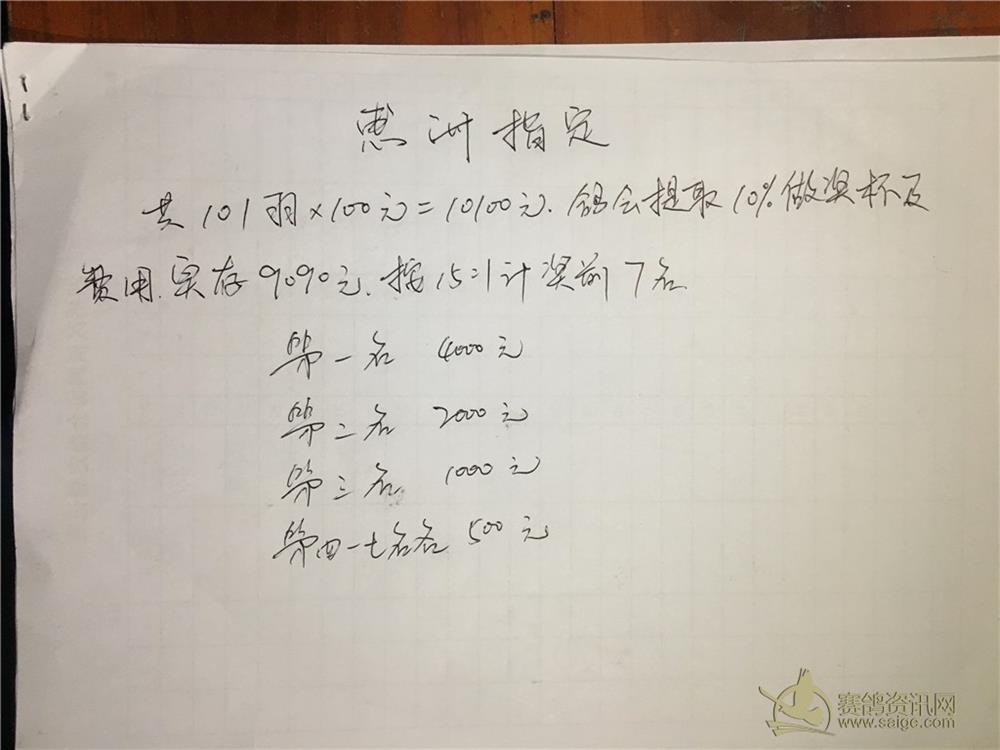 惠州指定
共101羽×100元=10100元.鸽会提取10%做奖杯及
费用.实存9090元.按15:1计奖前7名
第一名 4000元
第二名 2000元
第三名 1000元
第四一七名各 500元
赛鸽资讯网
www.saige.com